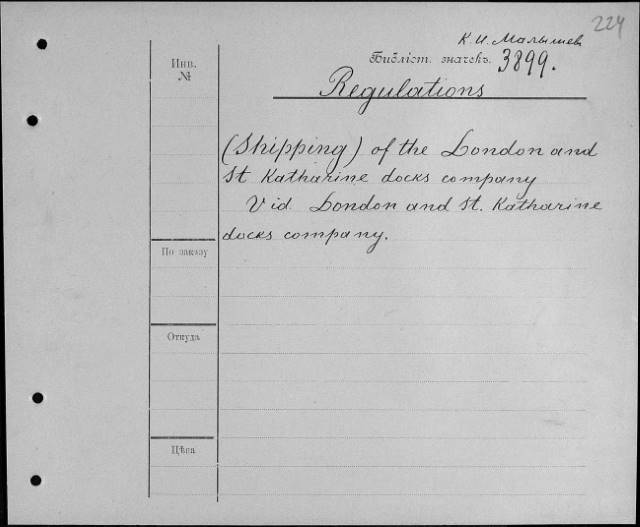 224
К. И. Малышев
Библіот. значекъ. 3899.
Инв.
№
Regulations
(Shipping) of the London and
St Katharine docks company
Vid London and St. Katharine
docks company.
По заказу
Откуда
Цѣна